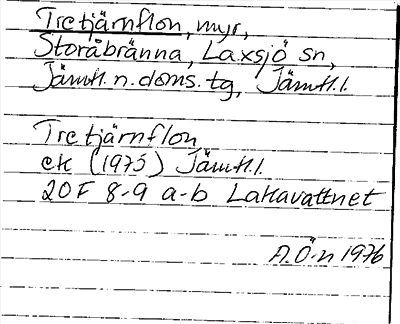 Tretjärnflon, myr,
Storåbränna, Laxsjö sn,
Jämtl. n. doms. tg, Jämtl. l.
Tretjärnflon
ek (1975) Jämtl. l.
20F 8-9 a-b Lakavattnet
A.Ö-n 1976